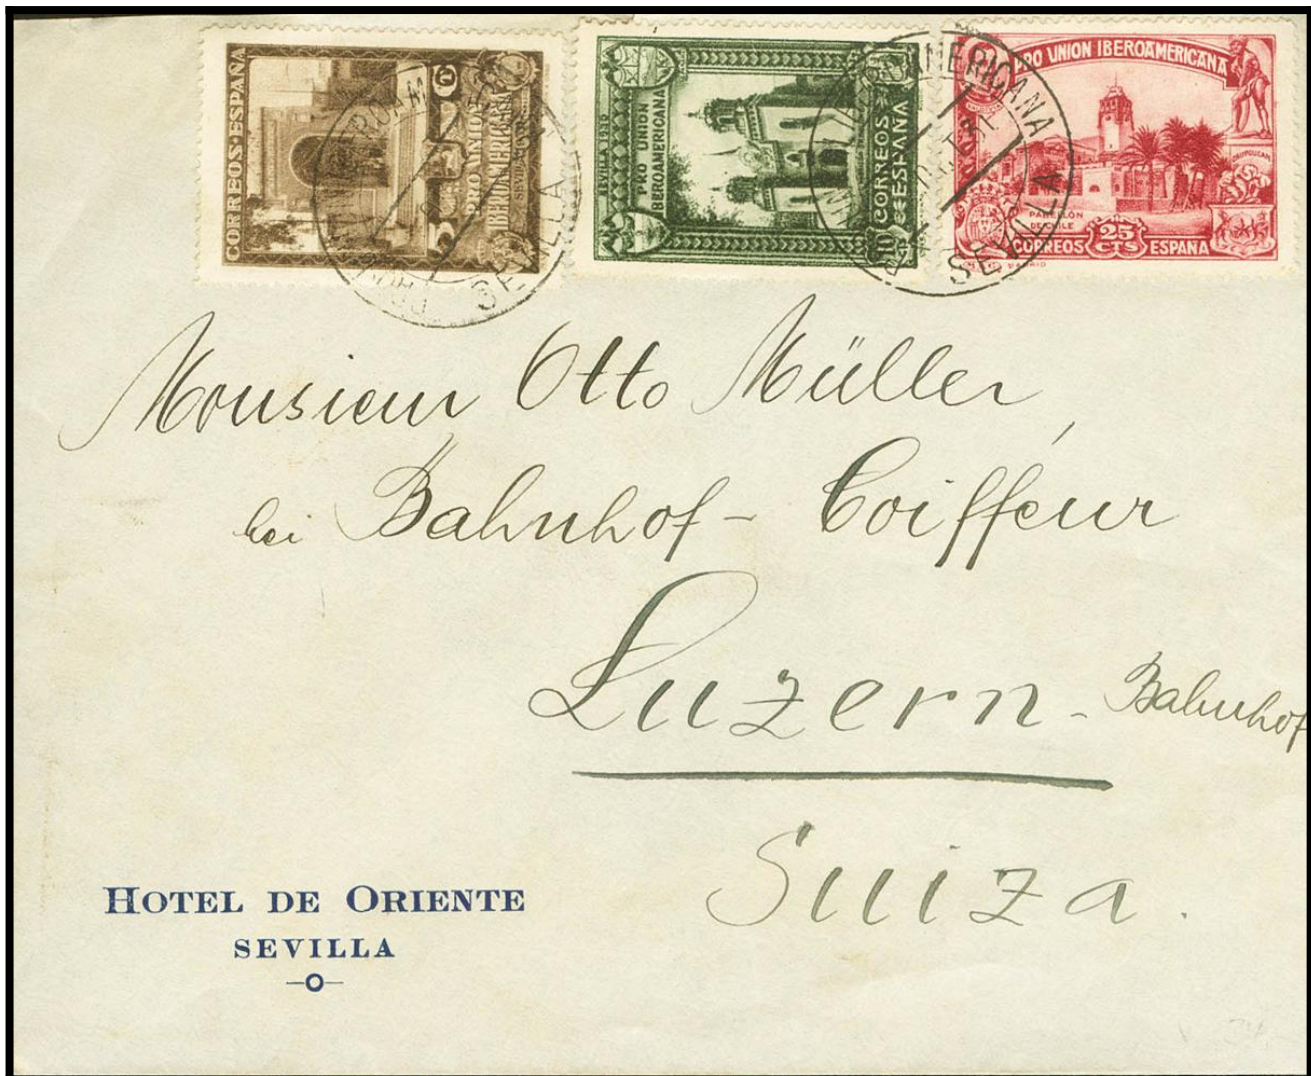 CORREOS · ESPAÑA
PRO UNION
IBEROAMERICANA
SEVILLA 1930
SEVILLA
SEVILLA 1930
PRO UNION
IBEROAMERICANA
10
CORREOS
ESPAÑA
AMERICANA
SEVILLA
PRO UNION IBEROAMERICANA
PABELLÓN
DE CHILE
25
CTS
CORREOS ESPAÑA
Monsieur Otto Müller,
bei Bahnhof - Coiffeur
Luzern - Bahnhof
Suiza.
HOTEL DE ORIENTE
SEVILLA